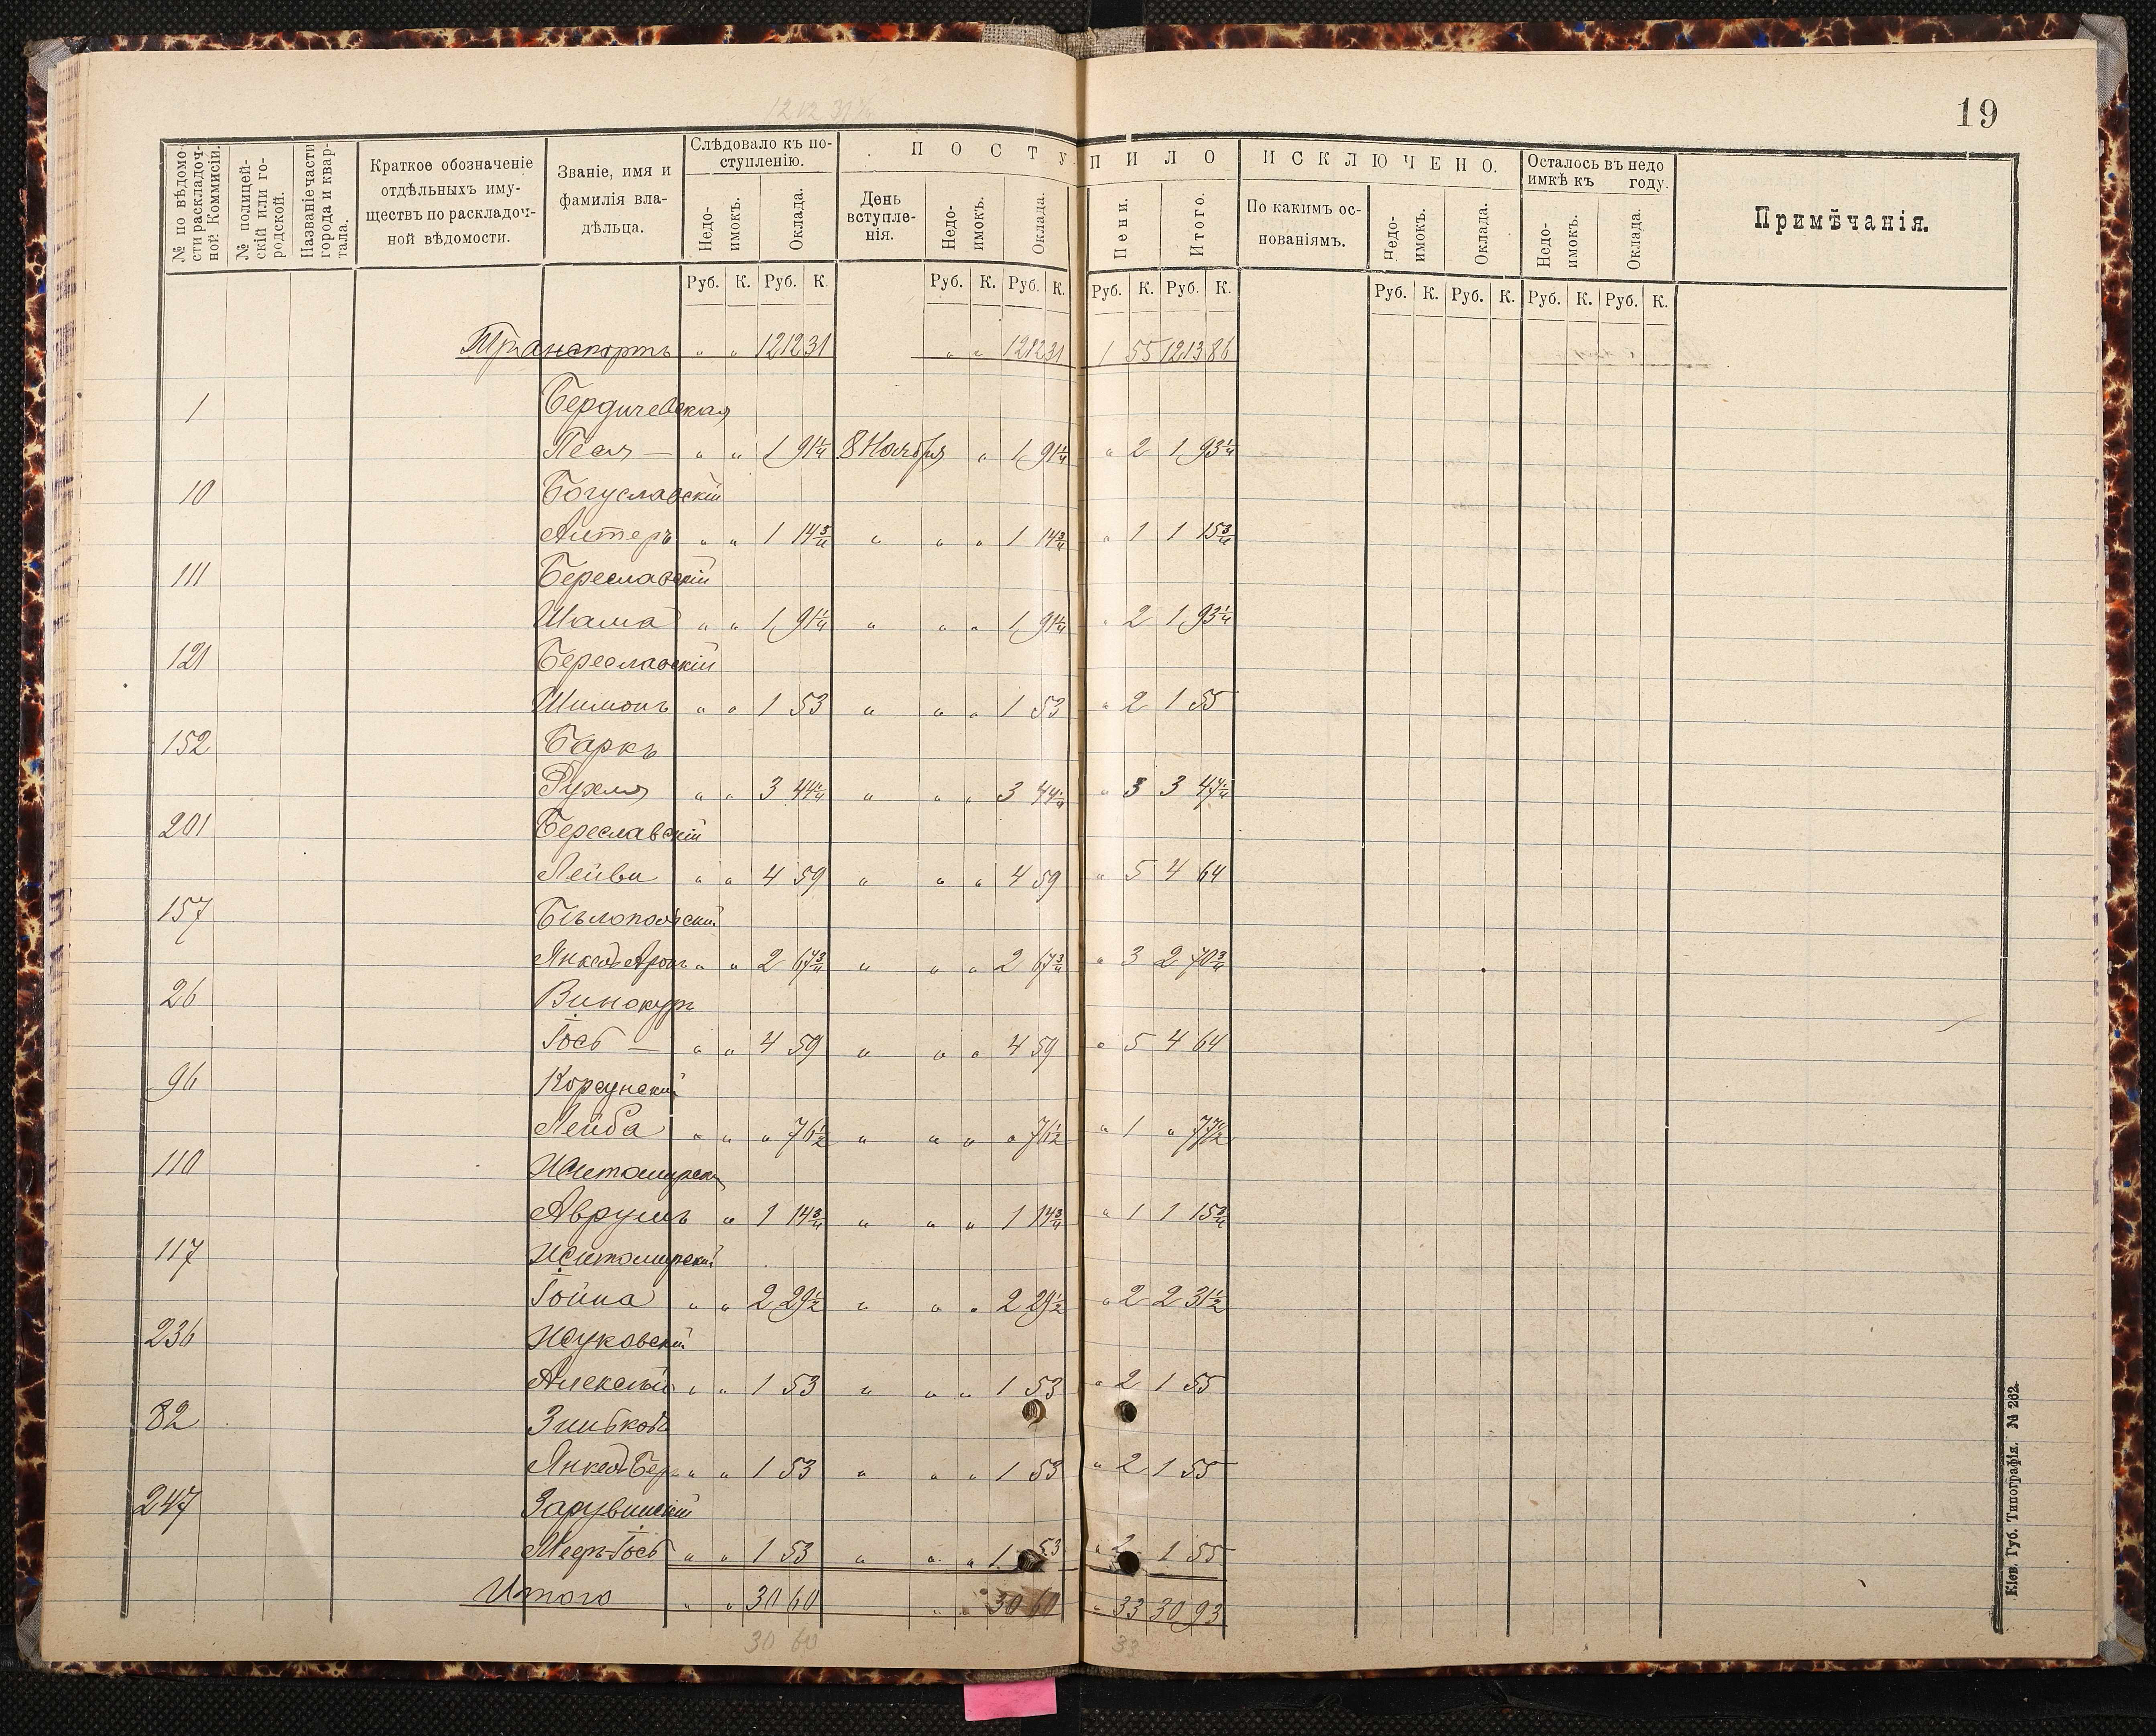 19
№ по вѣдомости раскладочной Коммисіи.
№ полицейскій или городской.
Названіе части города и квартала.
Краткое обозначеніе отдѣльныхъ имуществъ по раскладочной вѣдомости.
Званіе, имя и фамилія владѣльца.
Слѣдовало къ поступленію.
Недоимокъ.
Оклада.
ПОСТУПИЛО
День вступленія.
Недоимокъ.
Оклада.
Пени.
Итого.
ИСКЛЮЧЕНО.
По какимъ основаніямъ.
Недоимокъ.
Оклада.
Осталось въ недоимкѣ къ году.
Недоимокъ.
Оклада.
Примѣчанія.
Руб. К. Руб. К. Руб. К. Руб. К. Руб. К. Руб. К. Руб. К. Руб. К. Руб. К. Руб. К.
Транспортъ " " 1212 31 " " 1212 31 1 55 1213 86
1 Бердичевская
Песя — " " 1 91 1/4 8 Ноября " 1 91 1/4 " 2 1 93 1/4
10 Богуславскій
Алтеръ " " 1 14 3/4 " " " 1 14 3/4 " 1 1 15 3/4
111 Береславскій
Шама " " 1 91 1/4 " " " 1 91 1/4 " 2 1 93 1/4
121 Береславскій
Шимонъ " " 1 53 " " " 1 53 " 2 1 55
152 Баркъ
Рухля " " 3 44 1/4 " " " 3 44 1/4 " 3 3 47 1/4
201 Береславскій
Лейви " " 4 59 " " " 4 59 " 5 4 64
157 Бѣлопольскій
Янкель Аронъ " " 2 67 3/4 " " " 2 67 3/4 " 3 2 70 3/4
26 Винокуръ
Іось — " " 4 59 " " " 4 59 " 5 4 64
96 Корсунскій
Лейба " " " 76 1/2 " " " " 76 1/2 " 1 " 77 1/2
110 Житомирскій
Аврумъ " 1 14 3/4 " " " 1 14 3/4 " 1 1 15 3/4
117 Житомирскій
Іойна " " 2 29 1/2 " " " 2 29 1/2 " 2 2 31 1/2
236 Жуковскій
Алексѣй " " 1 53 " " " 1 53 " 2 1 55
82
Янкель Бер " " 1 53 " " " 1 53 " 2 1 55
247 Зарувинскій
Мееръ-Іось " " 1 53 " " " 1 53 " 2 1 55
Итого " " 30 60 " " 30 60 " 33 30 93
30 60 33
Кіев. Губ. Типографія. № 262.